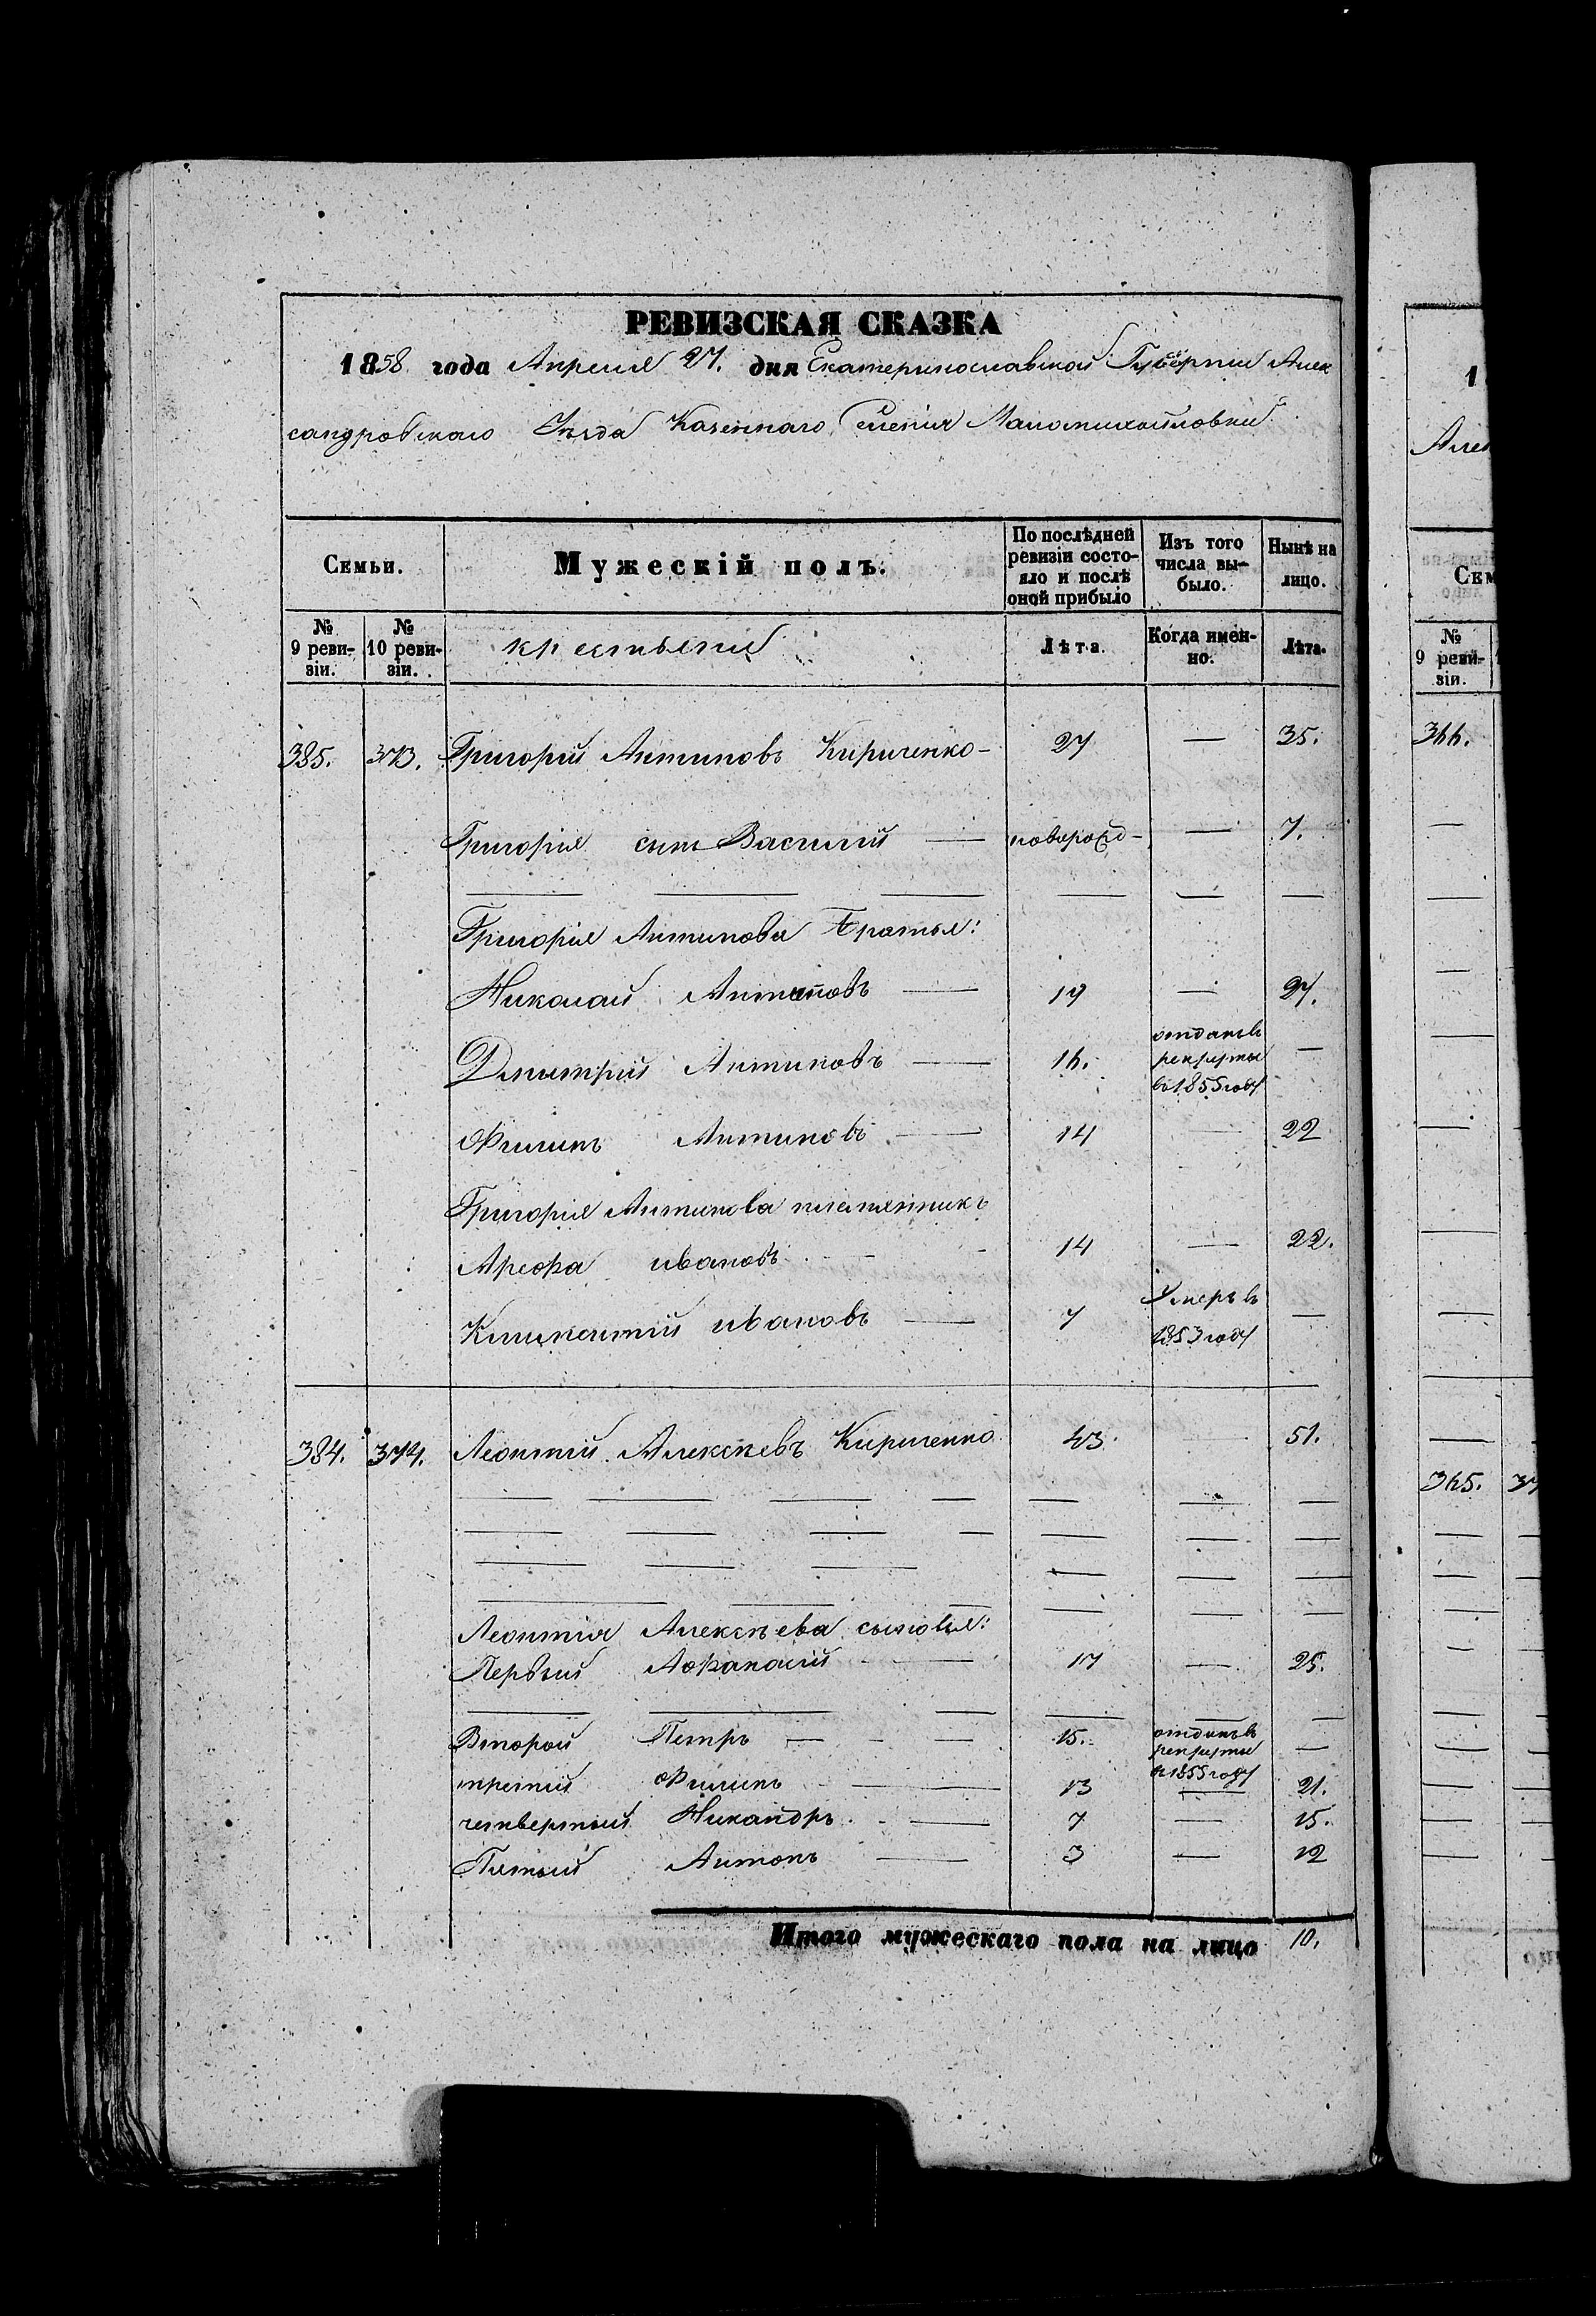 РЕВИЗСКАЯ СКАЗКА
1858 года Апреля 27. дня Екатеринославской Губерніи Алек
сандровскаго Уѣзда Казеннаго Селенія Маломихайловки
Семьи.
Мужескій полъ.
По послѣдней ревизіи состо-
яло и послѣ оной прибыло
Изъ того числа вы-
было.
Нынѣ на лицо.
№ 9 реви-
зіи.
№ 10 реви-
зіи.
крестьяне
Лѣта.
Когда имен-
но.
Лѣта.
385. 373. Григорій Антиповъ Кириченко - 27 — 35.
Григорія сынъ Василій — поворожд- — 7.
Григорія Антипова братья:
Николай Антиповъ — 19 — 27.
Дмитрій Антиповъ — 16. отданъ въ рекруты въ 1855 году —
Филипъ Антиповъ — 14 — 22
Григорія Антипова племянникъ
Арефа ивановъ - 14 — 22.
Климентій ивановъ — 7 Умеръ въ 1853 году —
384. 374. Леонтій Алексѣевъ Кириченко 43. — 51.
Леонтія Алексѣева сыновья:
Первый Афанасий — 17 — 25.
Второй Петръ — 15. отданъ въ рекруты в 1855 году —
третій Филипъ — 13 — 21.
четвертый Никандръ — 7 — 15.
Пятый Антонъ — 3 — 12
Итого мужескаго пола на лицо 10.
1
Алек
Сем
№ 9 реви-
зіи.
366.
365. 37